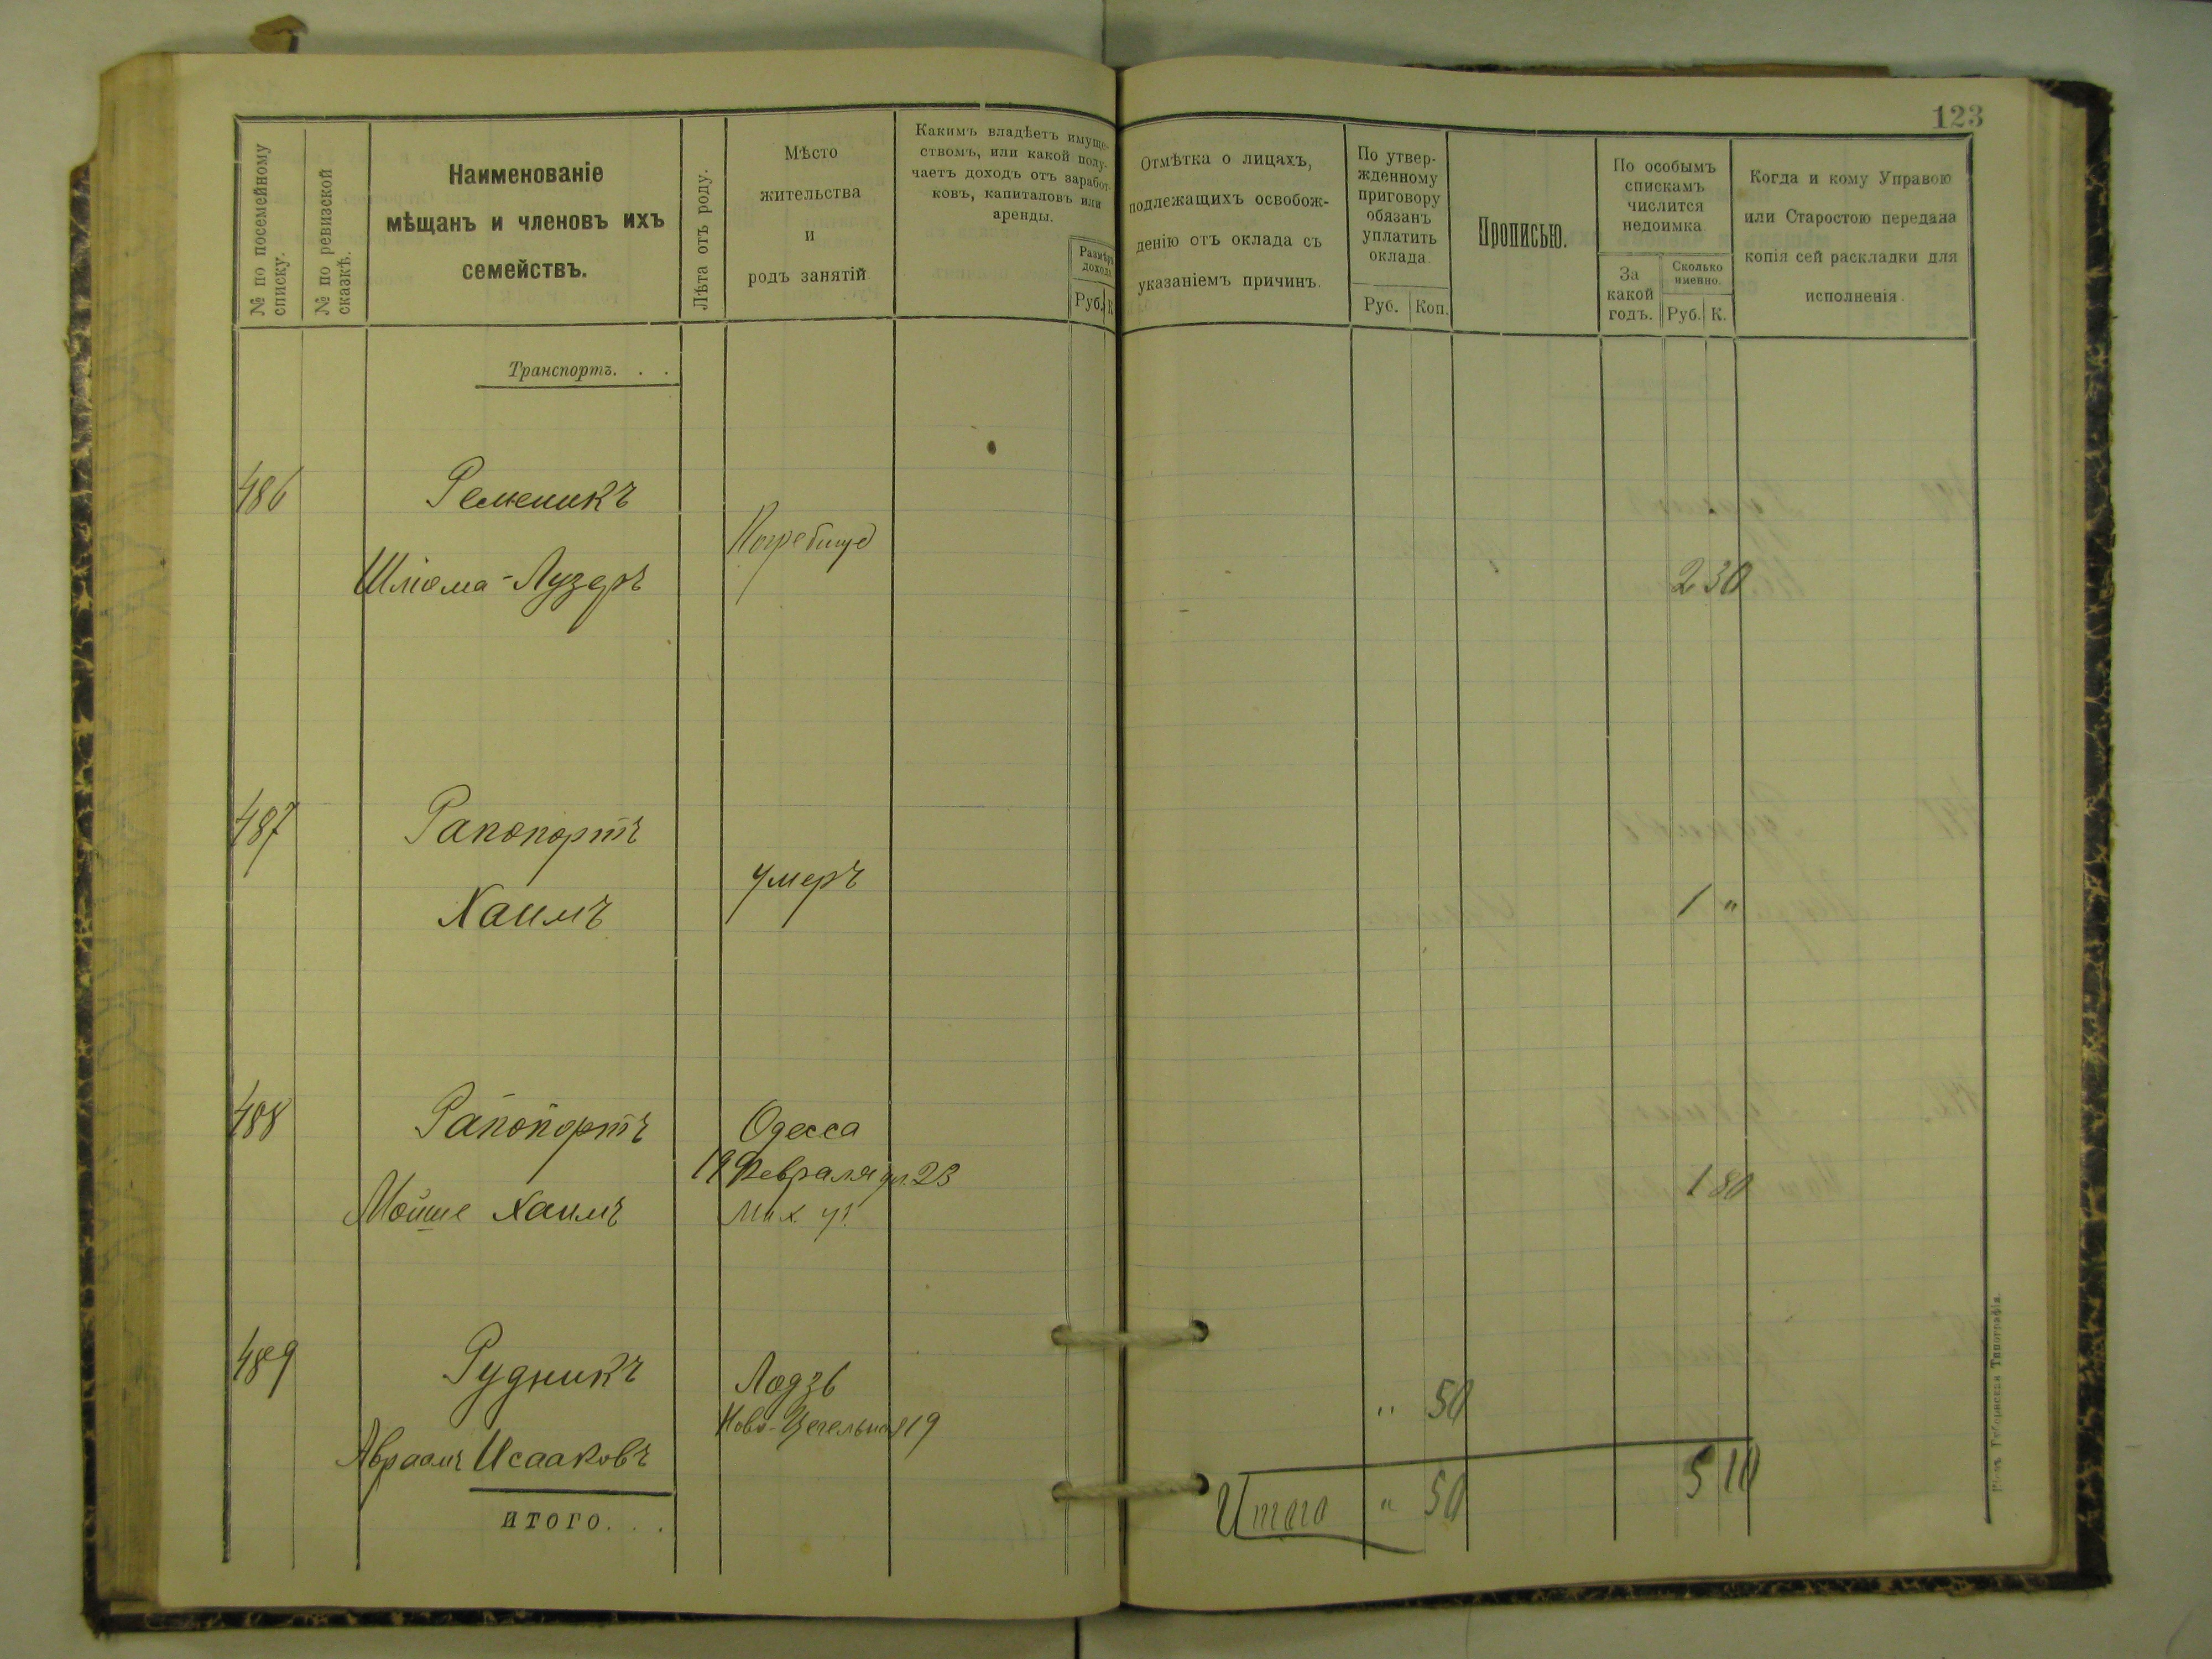 123
№ по посемейному
списку.
№ по ревизской
сказкѣ.
Наименованіе
мѣщанъ и членовъ ихъ
семействъ.
Лѣта отъ роду.
Мѣсто
жительства
и
родъ занятій
Какимъ владѣетъ имуще-
ствомъ, или какой полу-
чаетъ доходъ отъ заработ-
ковъ, капиталовъ или
аренды.
Размѣръ
дохода.
Руб. К
Отмѣтка о лицахъ,
подлежащихъ освобож-
денію отъ оклада съ
указаніемъ причинъ.
По утвер-
жденному
приговору
обязанъ
уплатить
оклада.
Руб. Коп.
Прописью.
По особымъ
спискамъ
числится
недоимка.
За
какой
годъ.
Сколько
именно.
Руб. К.
Когда и кому Управою
или Старостою передана
копія сей раскладки для
исполненія.
Транспортъ. . .
486 Ременикъ
Погребище
Шліома-Лузеръ 2 30
487 Рапопортъ
умеръ
Хаимъ 1 "
488 Рапопортъ Одесса
19 Февраля д. 23
Мойше Хаимъ 1 80
489 Рудникъ Лодзь
Ново-Цегельная 19 " 50
Авраамъ Исааковъ
итого. . .
Итого " 50 5 10
Кіевъ, Губернская Типографія.